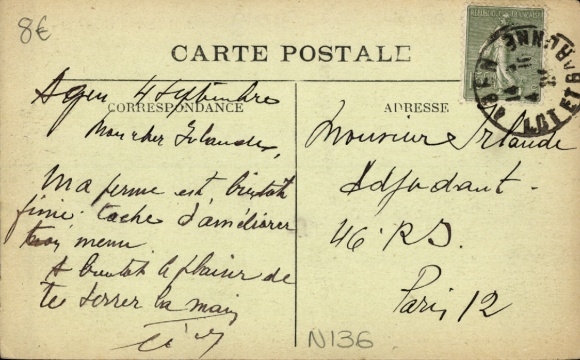 8€
CARTE POSTALE
CORRESPONDANCE
ADRESSE
Agen 4 Septembre
Mon cher Irlande,
Ma ferme est bientôt
finie. tache d'améliorer
ton menu
A bientot le plaisir de
te serrer la main
Monsieur Irlande
Adjudant
46 R.I.
Paris 12
N136
AGEN
LOT ET GARONNE